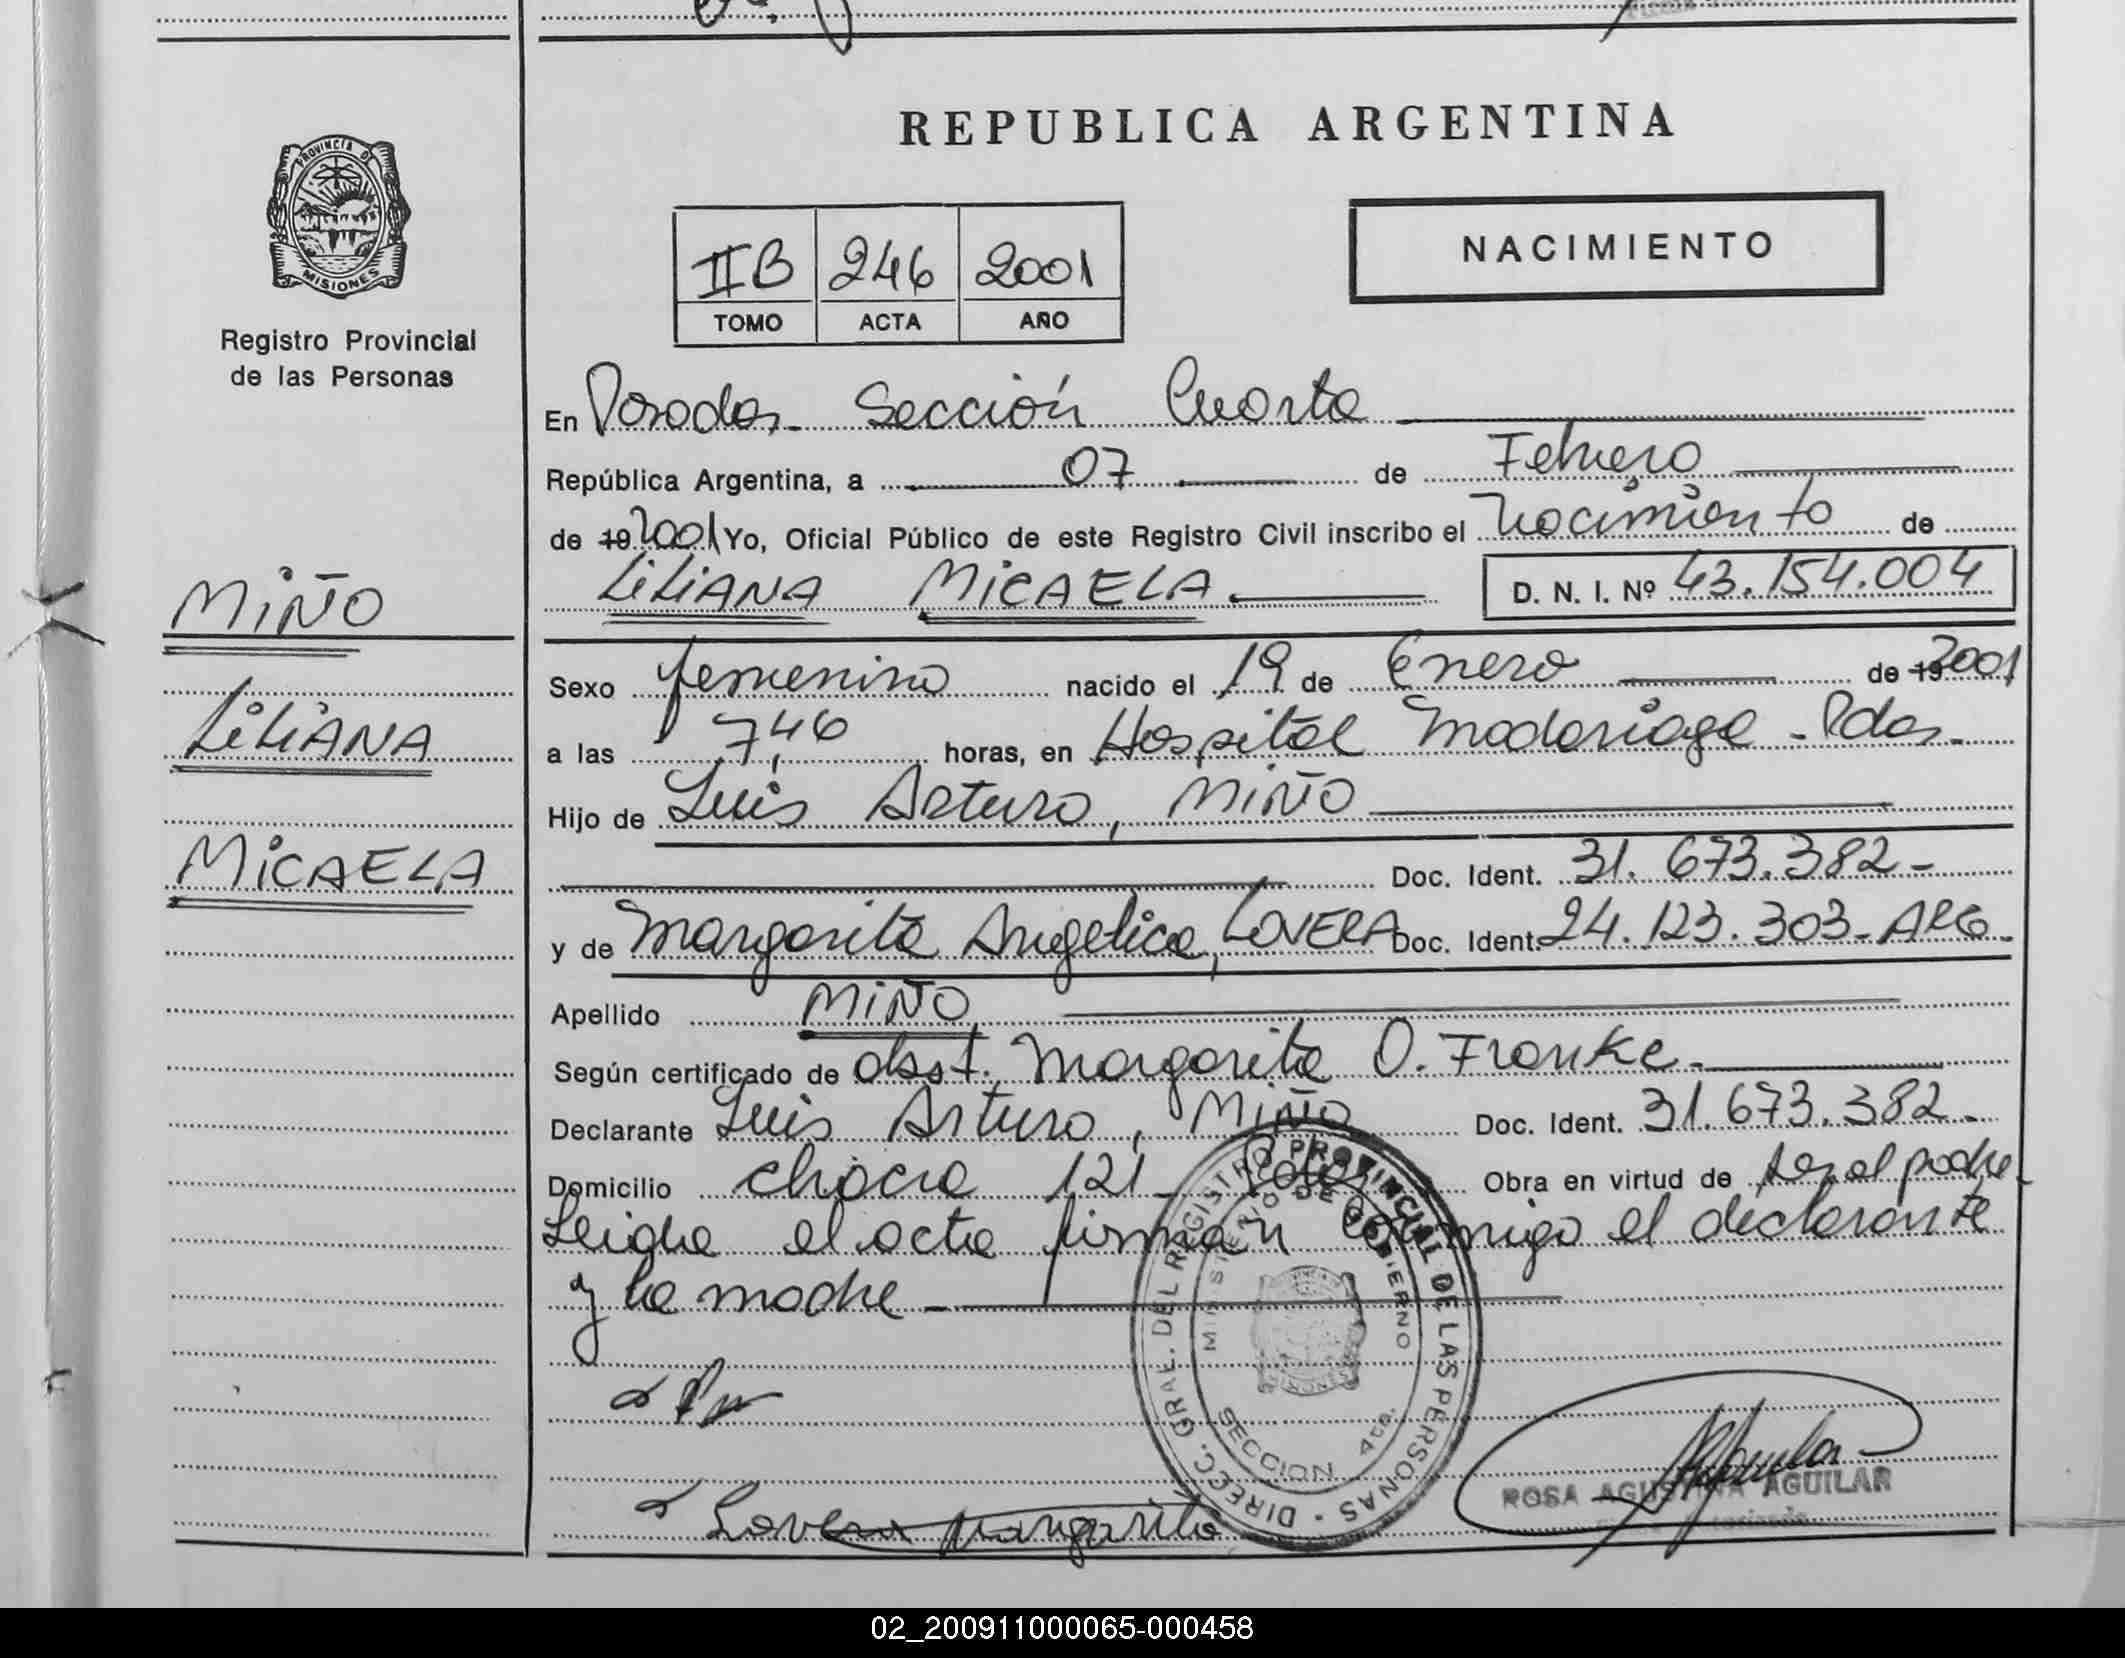 REPUBLICA ARGENTINA
PROVINCIA DE
MISIONES
Registro Provincial
de las Personas
IIB 246 2001
TOMO ACTA AÑO
NACIMIENTO
En Posadas- Sección Cuarta
República Argentina, a 07 de Febrero
de 19 2001 Yo, Oficial Público de este Registro Civil inscribo el Nacimiento de
LiLiANA MiCAELA D. N. I. Nº 43.154.004
MiÑO
LiLiANA
MiCAELA
Sexo femenino nacido el 19 de Enero de 19 2001
a las 7,46 horas, en Hospital Madariaga - Pdas-
Hijo de Luis Arturo, MiÑO
Doc. Ident. 31.673.382-
y de Margarita Angelica, LOVERA Doc. Ident. 24.123.303-ARG-
Apellido MiÑO
Según certificado de obst. Margarita O. Franke-
Declarante Luis Arturo, MiÑO Doc. Ident. 31.673.382-
Domicilio chacra 121- Pdas Obra en virtud de ser el padre-
Leida el acta firman conmigo el declarante
y la madre-
DIRECC. GRAL. DEL REGISTRO PROVINCIAL DE LAS PERSONAS
MINISTERIO DE GOBIERNO
SECCION 4ta.
Lovera Margarita
ROSA AGUSTINA AGUILAR
02_200911000065-000458